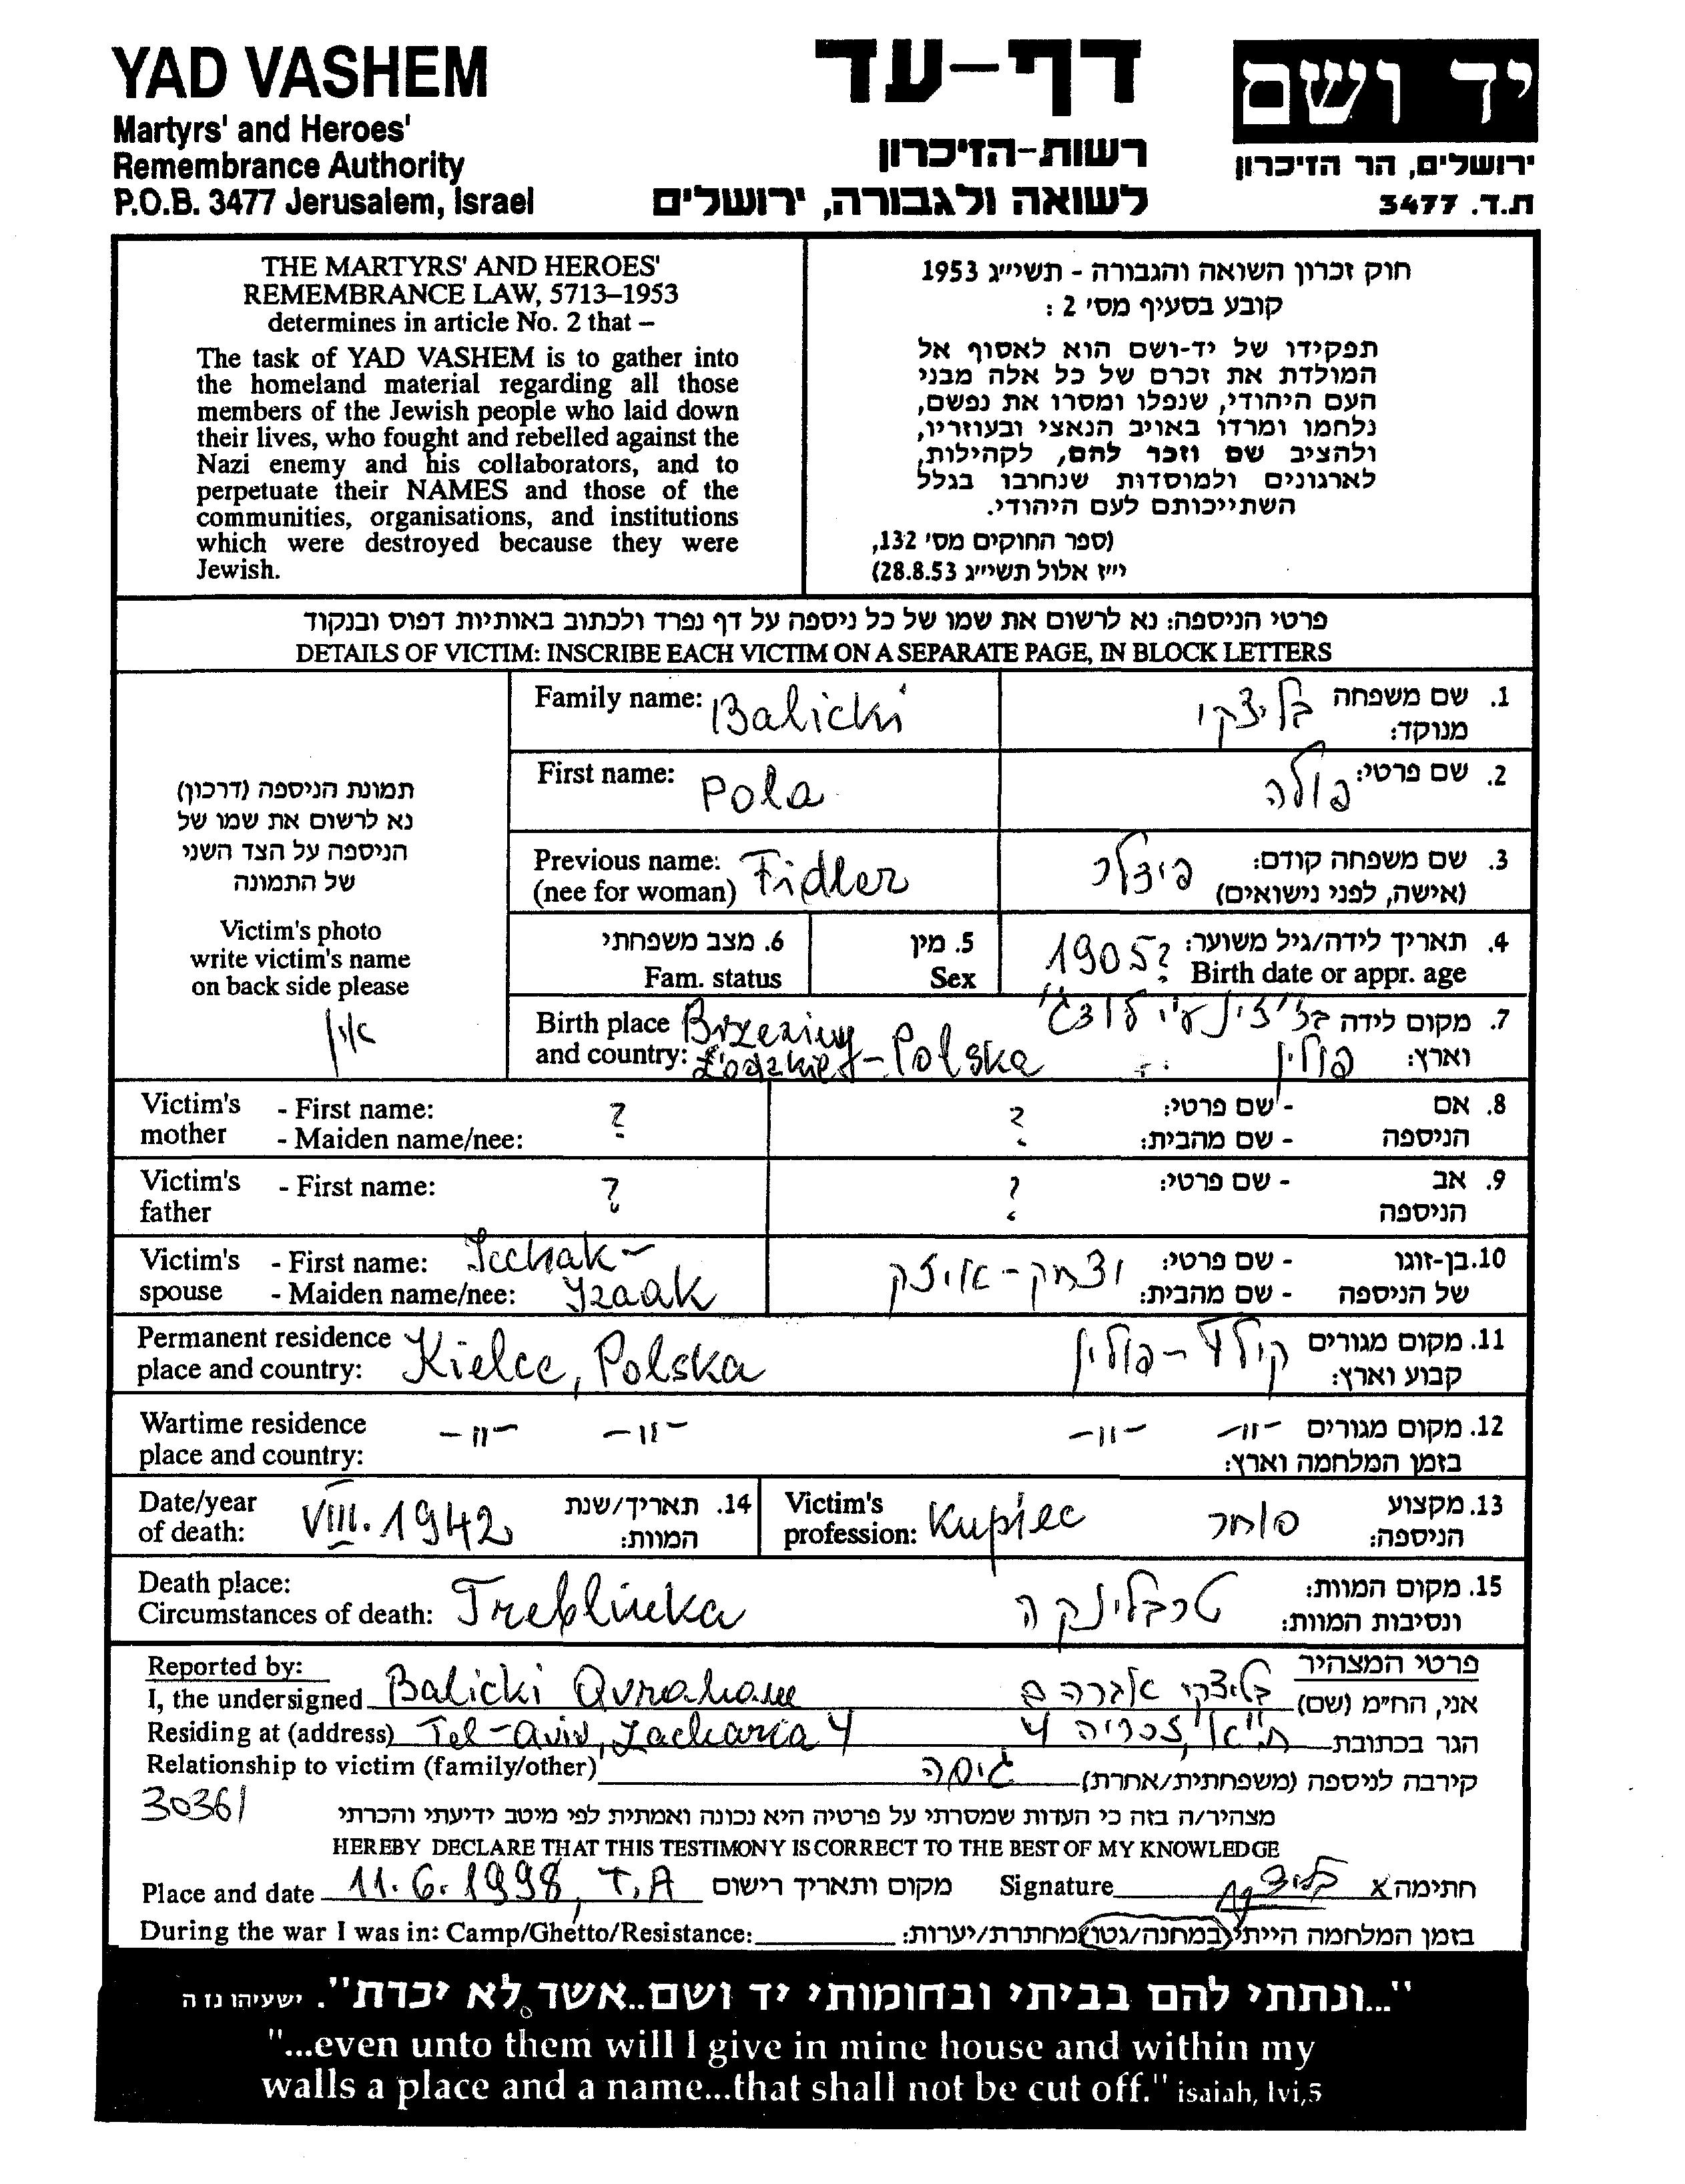 YAD VASHEM
Martyrs' and Heroes'
Remembrance Authority
P.O.B. 3477 Jerusalem, Israel
דף-עד
רשות-הזיכרון
לשואה ולגבורה, ירושלים
יד ושם
ירושלים, הר הזיכרון
ת.ד. 3477
THE MARTYRS' AND HEROES'
REMEMBRANCE LAW, 5713–1953
determines in article No. 2 that –
The task of YAD VASHEM is to gather into
the homeland material regarding all those
members of the Jewish people who laid down
their lives, who fought and rebelled against the
Nazi enemy and his collaborators, and to
perpetuate their NAMES and those of the
communities, organisations, and institutions
which were destroyed because they were
Jewish.
חוק זכרון השואה והגבורה - תשי״ג 1953
קובע בסעיף מס' 2 :
תפקידו של יד-ושם הוא לאסוף אל
המולדת את זכרם של כל אלה מבני
העם היהודי, שנפלו ומסרו את נפשם,
נלחמו ומרדו באויב הנאצי ובעוזריו,
ולהציב שם וזכר להם, לקהילות,
לארגונים ולמוסדות שנחרבו בגלל
השתייכותם לעם היהודי.
(ספר החוקים מס' 132,
י״ז אלול תשי״ג 28.8.53)
פרטי הניספה: נא לרשום את שמו של כל ניספה על דף נפרד ולכתוב באותיות דפוס ובנקוד
DETAILS OF VICTIM: INSCRIBE EACH VICTIM ON A SEPARATE PAGE, IN BLOCK LETTERS
תמונת הניספה (דרכון)
נא לרשום את שמו של
הניספה על הצד השני
של התמונה
Victim's photo
write victim's name
on back side please
אין
Family name: Balicki
1. שם משפחה מנוקד: בליצקי
First name: Pola
2. שם פרטי: פולה
Previous name: (nee for woman) Fidler
3. שם משפחה קודם: (אישה, לפני נישואים) פידלר
6. מצב משפחתי Fam. status
5. מין Sex
4. תאריך לידה/גיל משוער: Birth date or appr. age 1905?
Birth place and country: Brzeziny Łódzkie - Polska
7. מקום לידה וארץ: פולין
Victim's mother - First name: ?
- Maiden name/nee:
8. אם הניספה - שם פרטי: ?
- שם מהבית:
Victim's father - First name: ?
9. אב הניספה - שם פרטי: ?
Victim's spouse - First name: Icchak -
- Maiden name/nee: Izaak
10. בן-זוגו של הניספה - שם פרטי: יצחק - איזק
- שם מהבית:
Permanent residence place and country: Kielce, Polska
11. מקום מגורים קבוע וארץ: קילצה - פולין
Wartime residence place and country: -"- -"-
12. מקום מגורים בזמן המלחמה וארץ: -"- -"-
Date/year of death: VIII. 1942
14. תאריך/שנת המוות:
Victim's profession: Kupiec
13. מקצוע הניספה: סוחר
Death place:
Circumstances of death: Treblinka
15. מקום המוות: ונסיבות המוות: טרבלינקה
Reported by:
פרטי המצהיר
I, the undersigned Balicki Avraham
אני, הח״מ (שם) בליצקי אברהם
Residing at (address) Tel-Aviv, Zacharia 4
הגר בכתובת ת"א, זכריה 4
Relationship to victim (family/other)
קירבה לניספה (משפחתית/אחרת) גיסה
30361
מצהיר/ה בזה כי העדות שמסרתי על פרטיה היא נכונה ואמתית לפי מיטב ידיעתי והכרתי
HEREBY DECLARE THAT THIS TESTIMONY IS CORRECT TO THE BEST OF MY KNOWLEDGE
Place and date 11.6.1998, T.A מקום ותאריך רישום
Signature חתימה x
During the war I was in: Camp/Ghetto/Resistance:
בזמן המלחמה הייתי במחנה/גטו/מחתרת/יערות:
"...ונתתי להם בביתי ובחומותי יד ושם..אשר לא יכרת". ישעיהו נז ה
"...even unto them will I give in mine house and within my
walls a place and a name...that shall not be cut off." isaiah, lvi,5